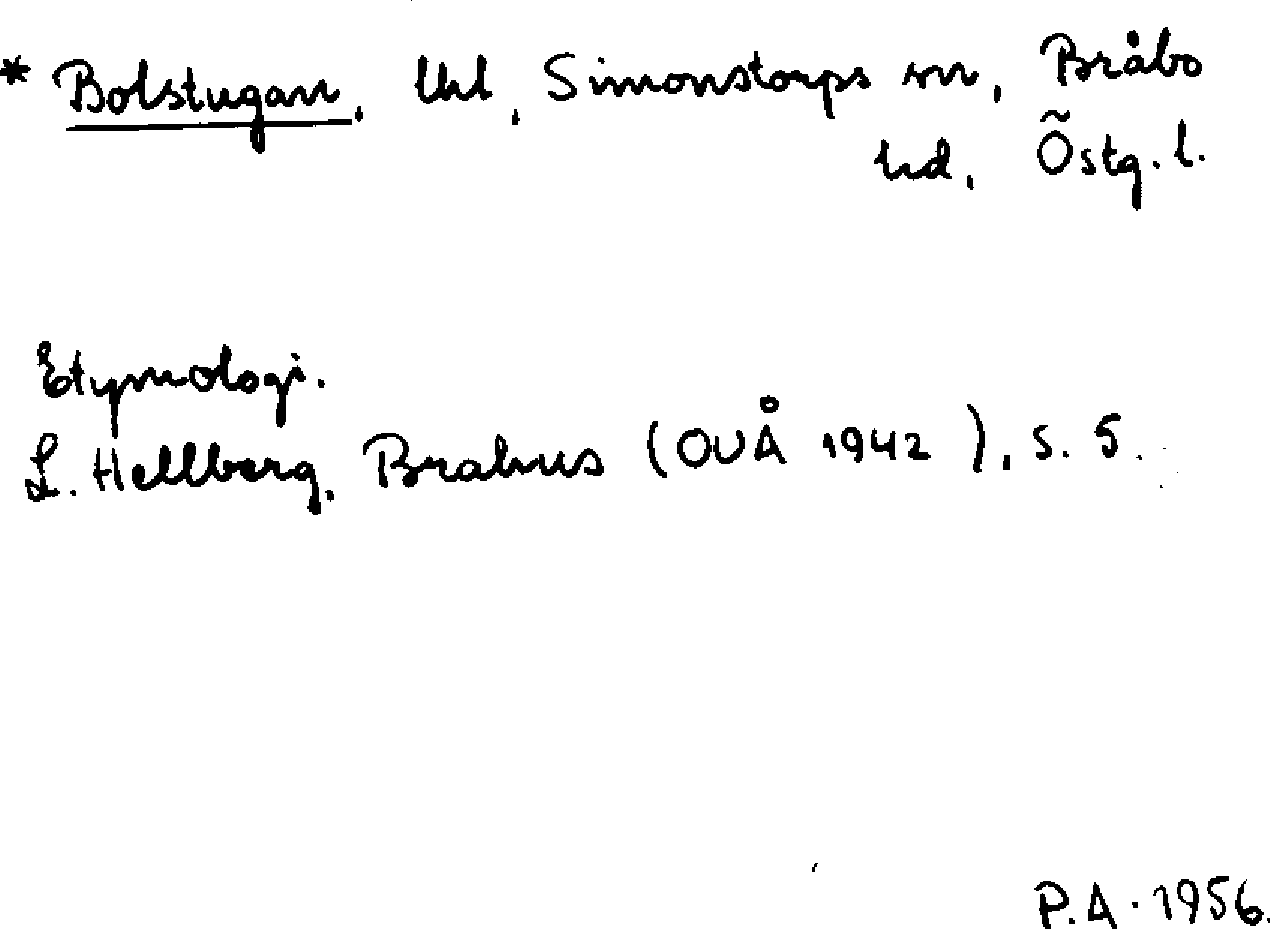 * Bolstugan, lht, Simonstorps sn, Bråbo
hd, Östg. l.
Etymologi.
L. Hellberg, Brahus (OUÅ 1942), s. 5.
P.A. 1956.